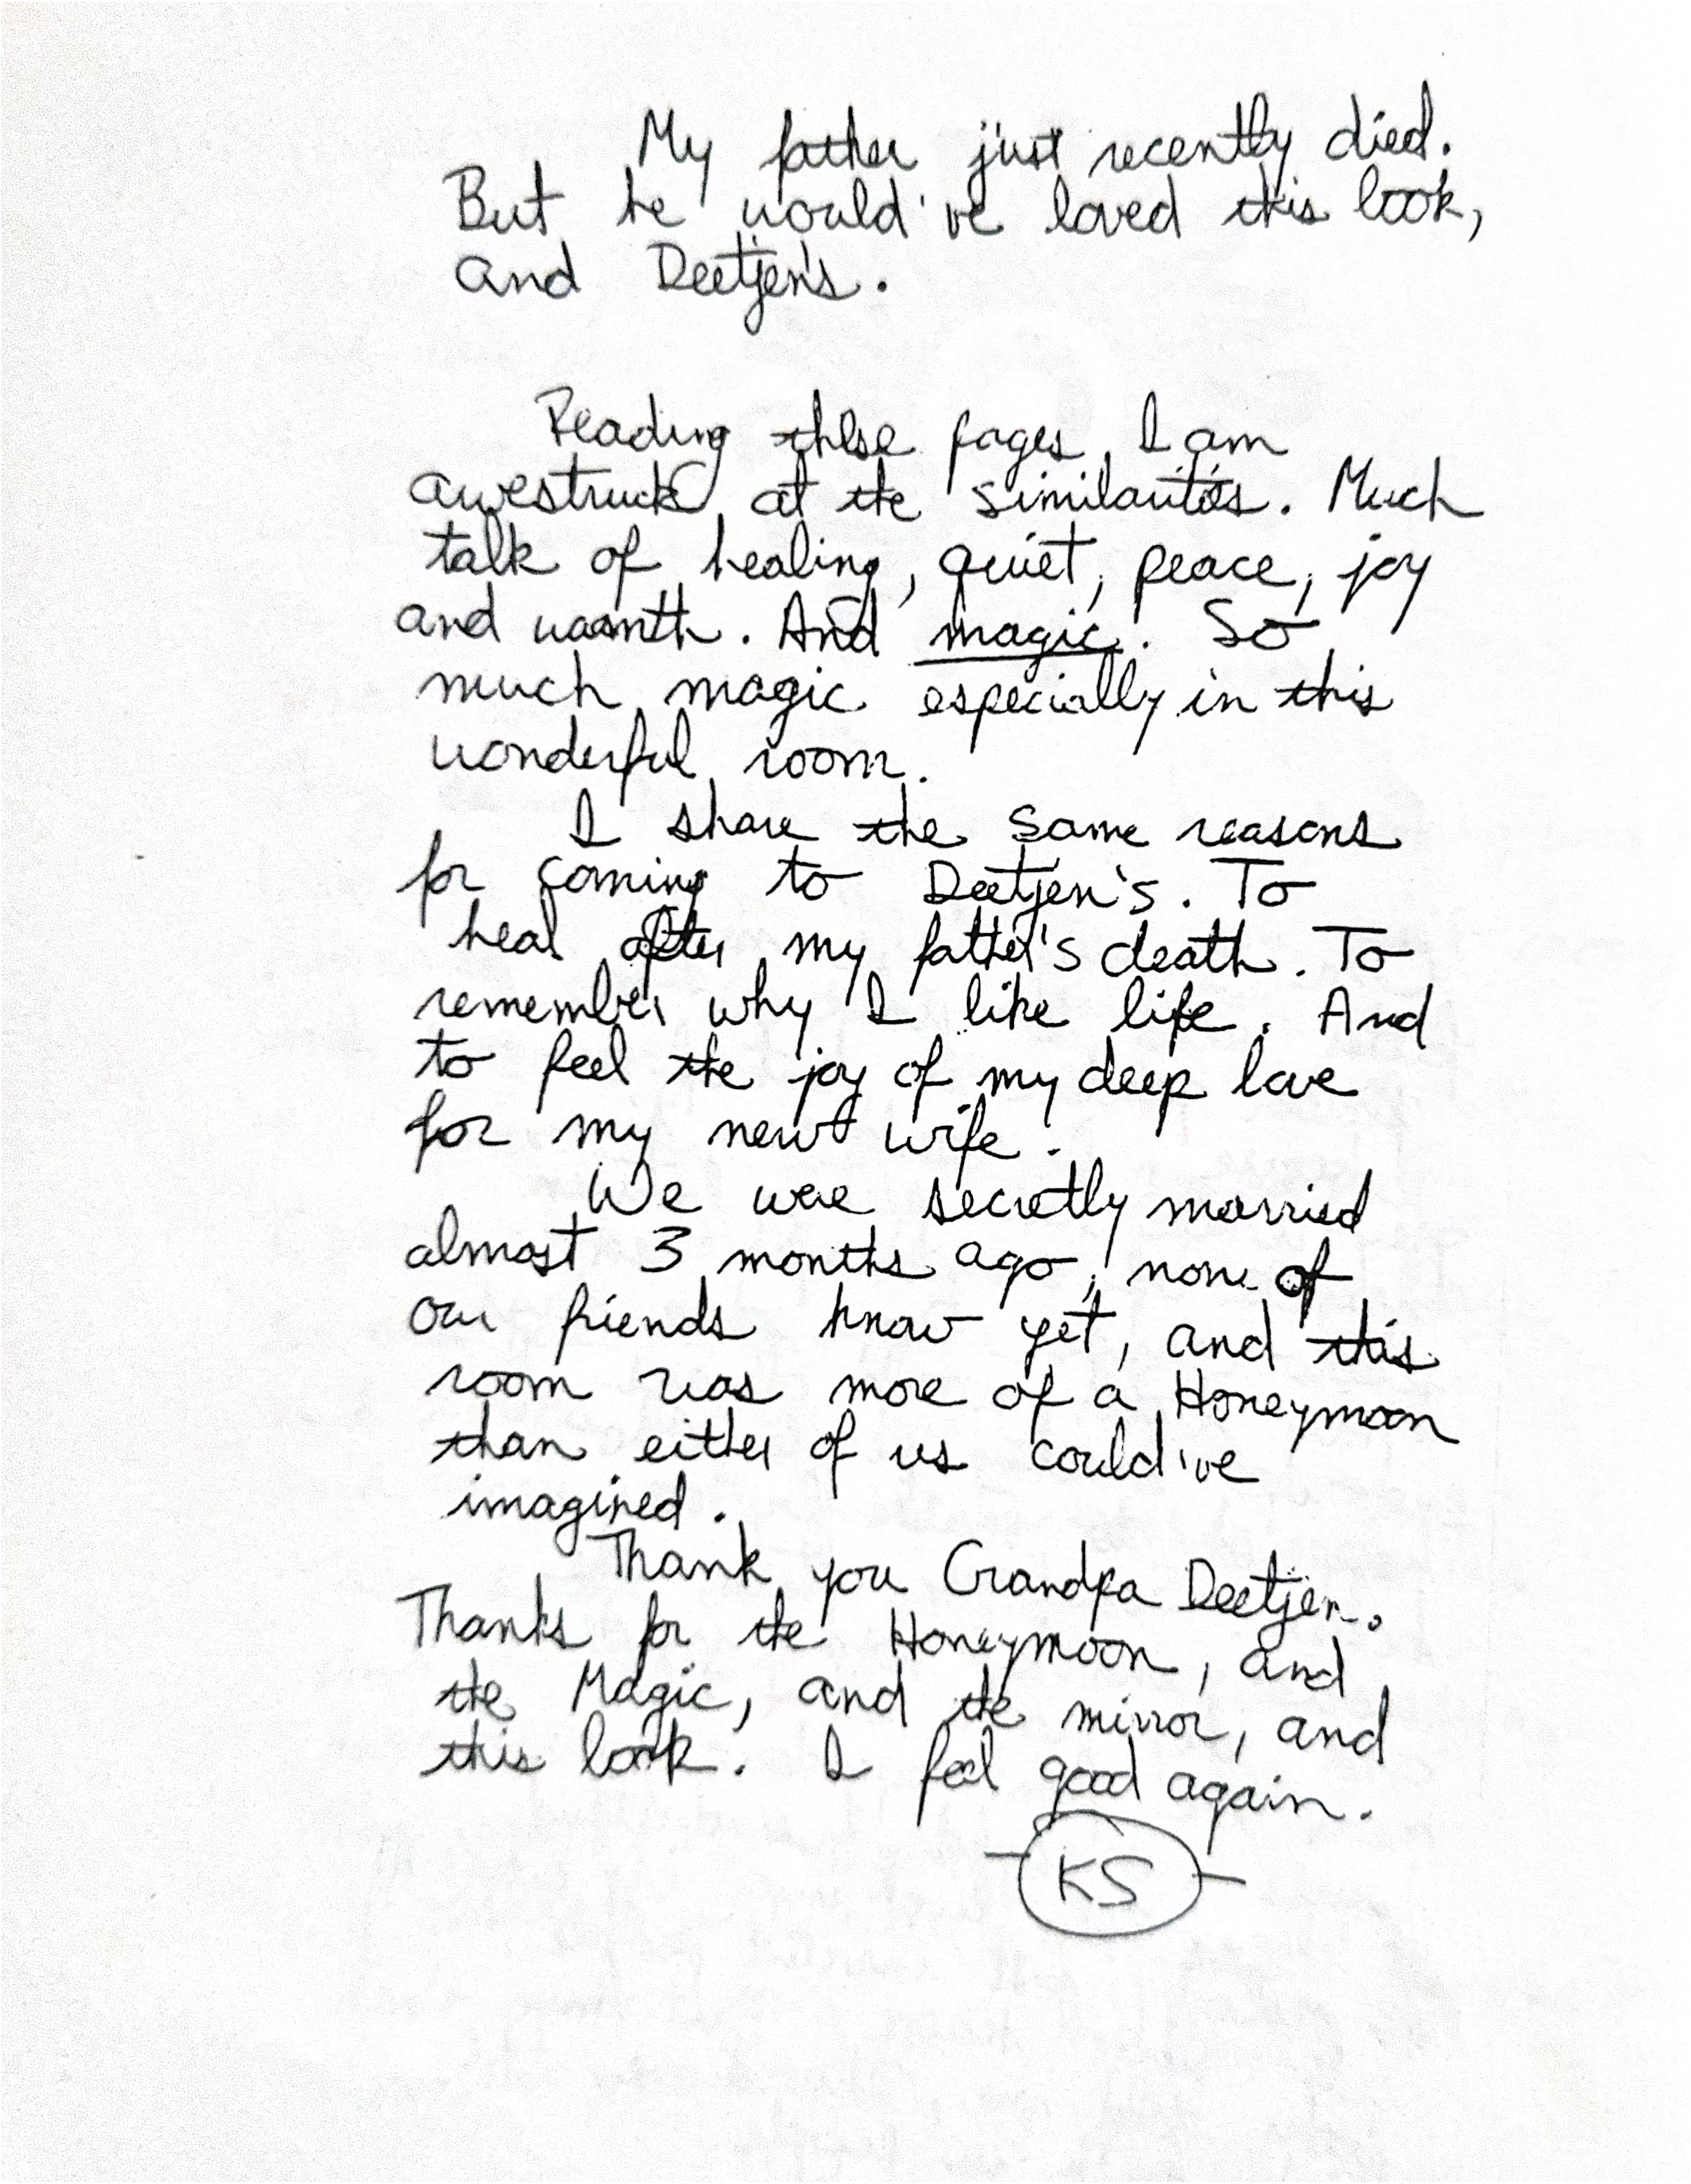 My father just recently died.
But he would've loved this book,
and Deetjen's.
Reading these pages, I am
awestruck at the similarities. Much
talk of healing, quiet, peace, joy
and warmth. And magic. So
much magic especially in this
wonderful room.
I share the same reasons
for coming to Deetjen's. To
heal after my father's death. To
remember why I like life. And
to feel the joy of my deep love
for my new wife.
We were secretly married
almost 3 months ago, none of
our friends know yet, and this
room was more of a Honeymoon
than either of us could've
imagined.
Thank you Grandpa Deetjen.
Thanks for the Honeymoon, and
the Magic, and the mirror, and
this book. I feel good again.
KS